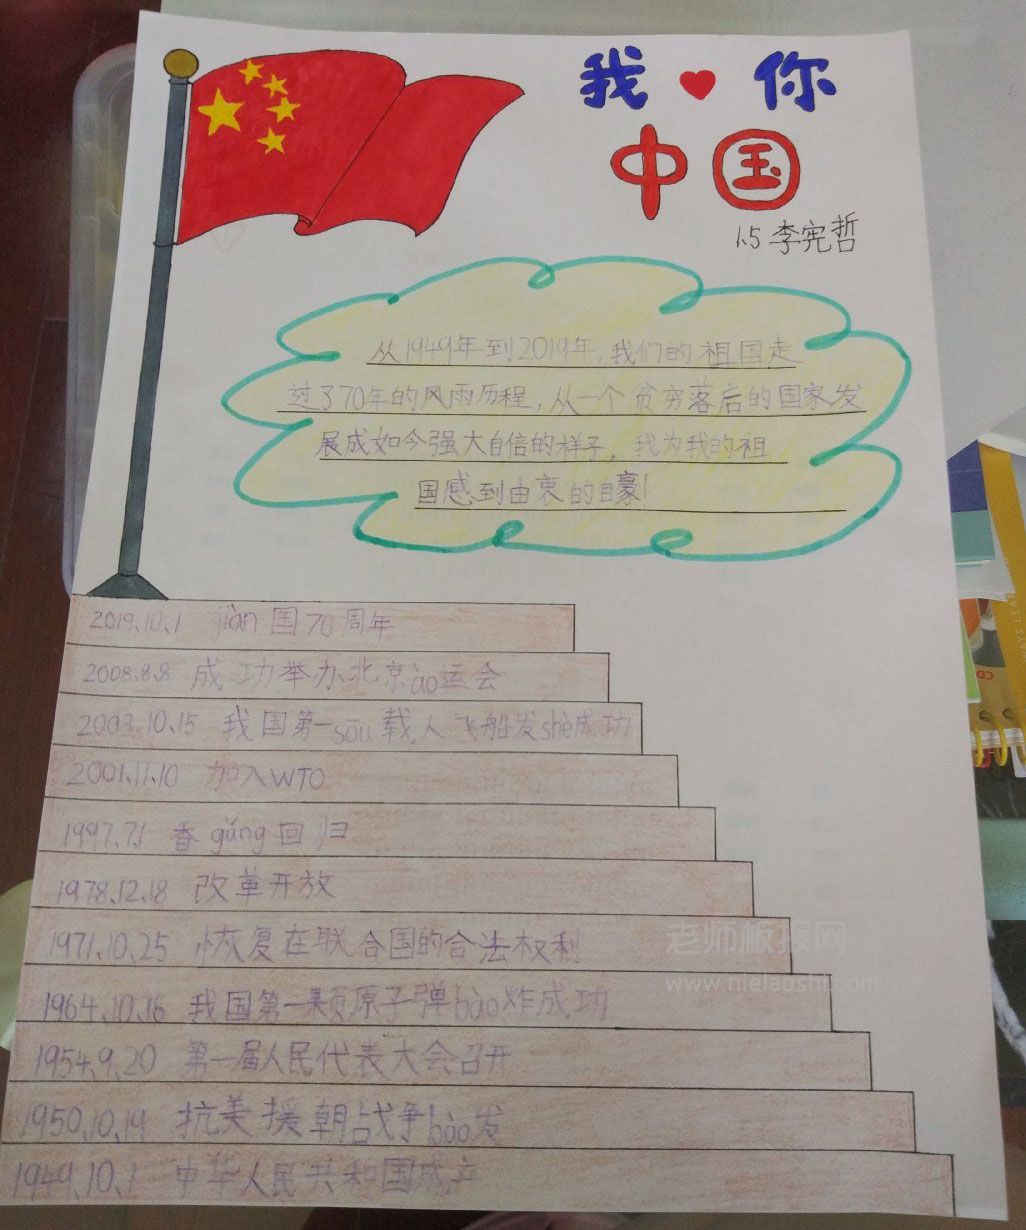 我❤你
中国
1.5 李宪哲
从1949年到2019年,我们的祖国走
过了70年的风雨历程,从一个贫穷落后的国家发
展成如今强大自信的样子,我为我的祖
国感到由衷的自豪!
2019.10.1 jiàn国70周年
2008.8.8 成功举办北京ào运会
2003.10.15 我国第一sōu载人飞船发shè成功
2001.11.10 加入WTO
1997.7.1 香gǎng回归
1978.12.18 改革开放
1971.10.25 恢复在联合国的合法权利
1964.10.16 我国第一颗原子弹bào炸成功
1954.9.20 第一届人民代表大会召开
1950.10.19 抗美援朝战争bào发
1949.10.1 中华人民共和国成立
老师板报网
www.nielaoshi.com